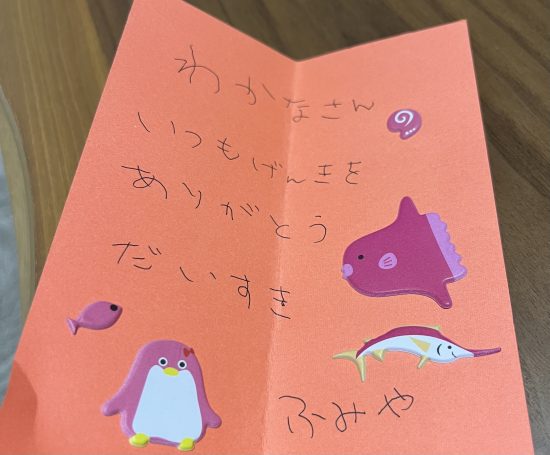 わかなさん
いつもげんきを
ありがとう
だいすき
ふみや